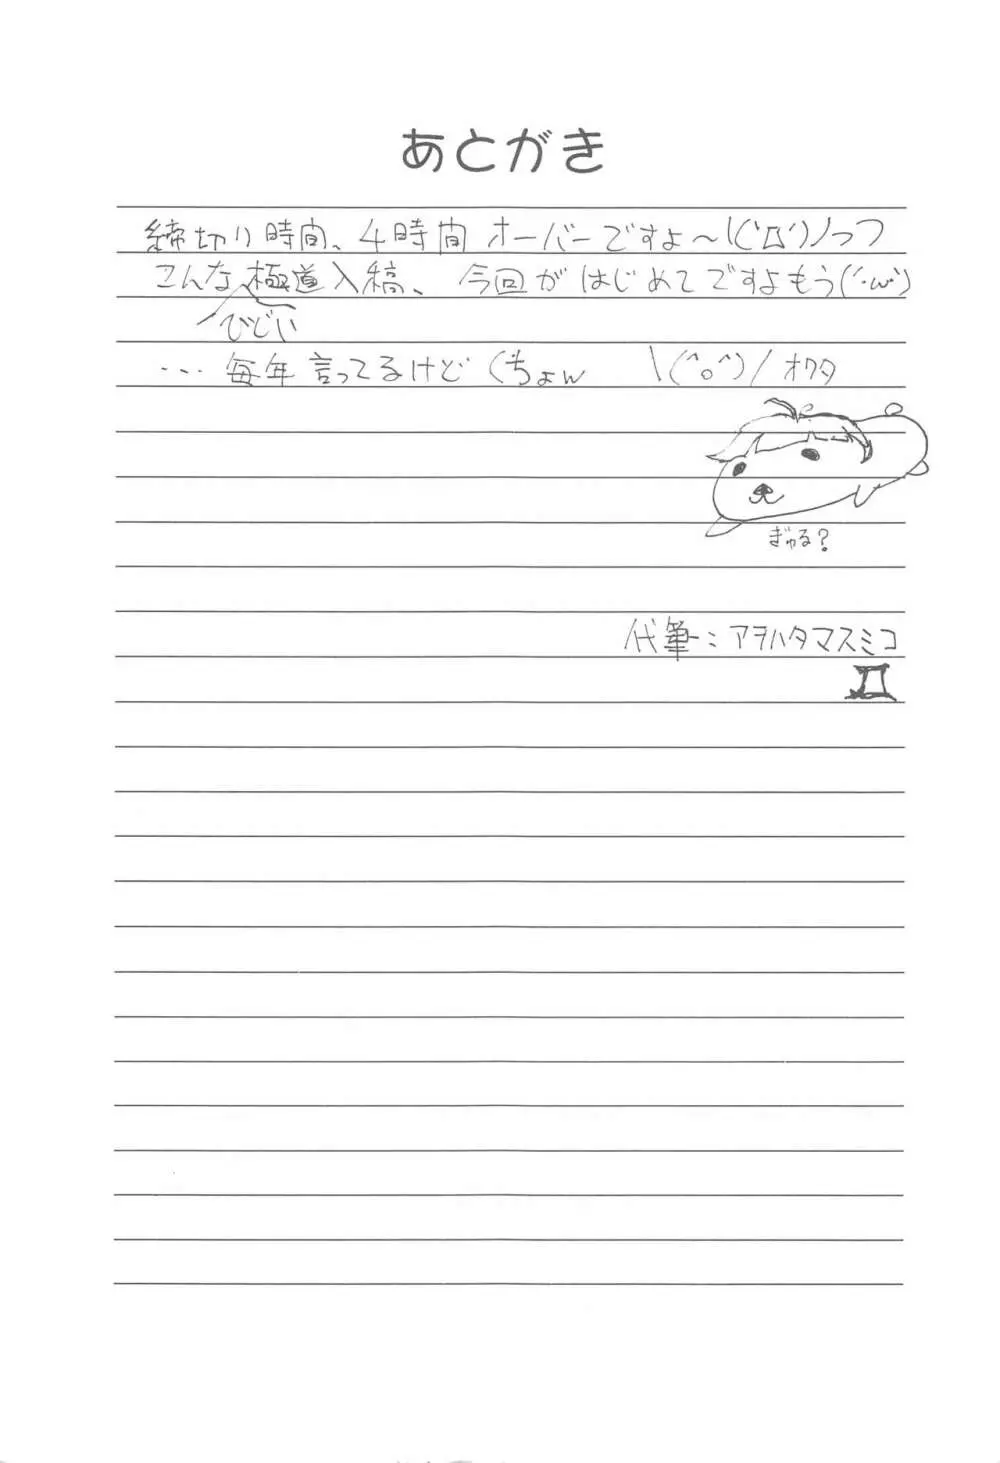 あとがき
締切り時間、4時間オーバーですよ～\(ﾟДﾟ)ﾉっつ
こんな極道入稿、今回がはじめてですよもう(´・ω・`)
びじい
… 毎年言ってるけど くちょん \(^o^)/オワタ
ぎゅる?
代筆:アヲハタマスミコ